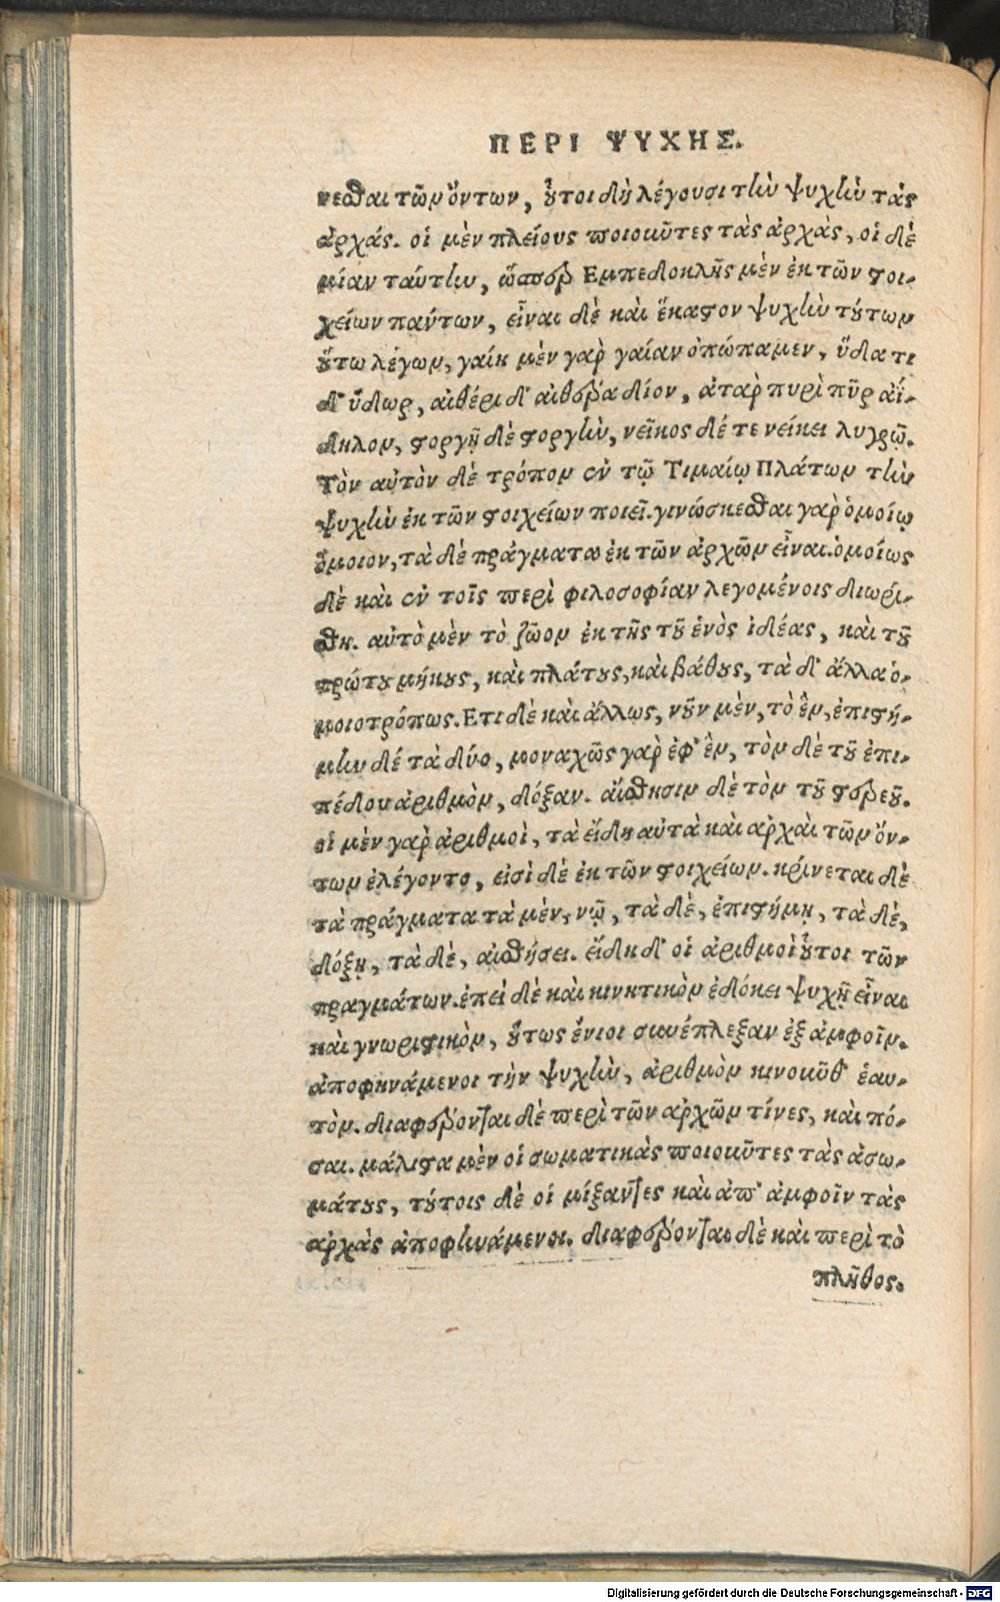 ΠΕΡΙ ΨΥΧΗΣ.
νεσθαι τῶν ὄντων, οὗτοι δὴ λέγουσι τὴν ψυχὴν τὰς
ἀρχάς. οἱ μὲν πλείους ποιοῦντες τὰς ἀρχὰς, οἱ δὲ
μίαν ταύτην, ὥσπερ Εμπεδοκλῆς μὲν ἐκ τῶν στοι-
χείων πάντων, εἶναι δὲ καὶ ἕκαστον ψυχὴν τούτων
οὕτω λέγων, γαίῃ μὲν γὰρ γαῖαν ὀπώπαμεν, ὕδατι
δ' ὕδωρ, αἰθέρι δ' αἰθέρα δῖον, ἀτὰρ πυρὶ πῦρ ἀΐ-
δηλον, στοργῇ δὲ στοργὴν, νεῖκος δέ τε νείκει λυγρῷ.
Τὸν αὐτὸν δὲ τρόπον ἐν τῷ Τιμαίῳ Πλάτων τὴν
ψυχὴν ἐκ τῶν στοιχείων ποιεῖ. γινώσκεσθαι γὰρ ὁμοίῳ
ὅμοιον, τὰ δὲ πράγματα ἐκ τῶν ἀρχῶν εἶναι. ὁμοίως
δὲ καὶ ἐν τοῖς περὶ φιλοσοφίαν λεγομένοις διωρί-
σθη. αὐτὸ μὲν τὸ ζῶον ἐκ τῆς τοῦ ἑνὸς ἰδέας, καὶ τοῦ
πρώτου μήκους, καὶ πλάτους, καὶ βάθους, τὰ δ' ἄλλα ὁ-
μοιοτρόπως. Ετι δὲ καὶ ἄλλως, νοῦν μὲν, τὸ ἓν, ἐπιστή-
μην δέ τὰ δύο, μοναχῶς γὰρ ἐφ' ἓν, τὸν δὲ τοῦ ἐπι-
πέδου ἀριθμὸν, δόξαν. αἴσθησιν δὲ τὸν τοῦ στερεοῦ.
οἱ μὲν γὰρ ἀριθμοὶ, τὰ εἴδη αὐτὰ καὶ ἀρχαὶ τῶν ὄν-
των ἐλέγοντο, εἰσὶ δὲ ἐκ τῶν στοιχείων. κρίνεται δὲ
τὰ πράγματα τὰ μὲν, νῷ, τὰ δὲ, ἐπιστήμῃ, τὰ δὲ,
δόξῃ, τὰ δὲ, αἰσθήσει. εἴδη δ' οἱ ἀριθμοὶ οὗτοι τῶν
πραγμάτων. ἐπεὶ δὲ καὶ κινητικὸν ἐδόκει ψυχὴ εἶναι
καὶ γνωριστικὸν, οὕτως ἔνιοι συνέπλεξαν ἐξ ἀμφοῖν.
ἀποφηνάμενοι τὴν ψυχὴν, ἀριθμὸν κινοῦνθ' ἑαυ-
τόν. διαφέρονται δὲ περὶ τῶν ἀρχῶν τίνες, καὶ πό-
σαι. μάλιστα μὲν οἱ σωματικὰς ποιοῦντες τὰς ἀσω-
μάτους, τούτοις δὲ οἱ μίξαντες καὶ ἀπ' ἀμφοῖν τὰς
ἀρχὰς ἀποφηνάμενοι. διαφέρονται δὲ καὶ περὶ τὸ
πλῆθος.
Digitalisierung gefördert durch die Deutsche Forschungsgemeinschaft - DFG